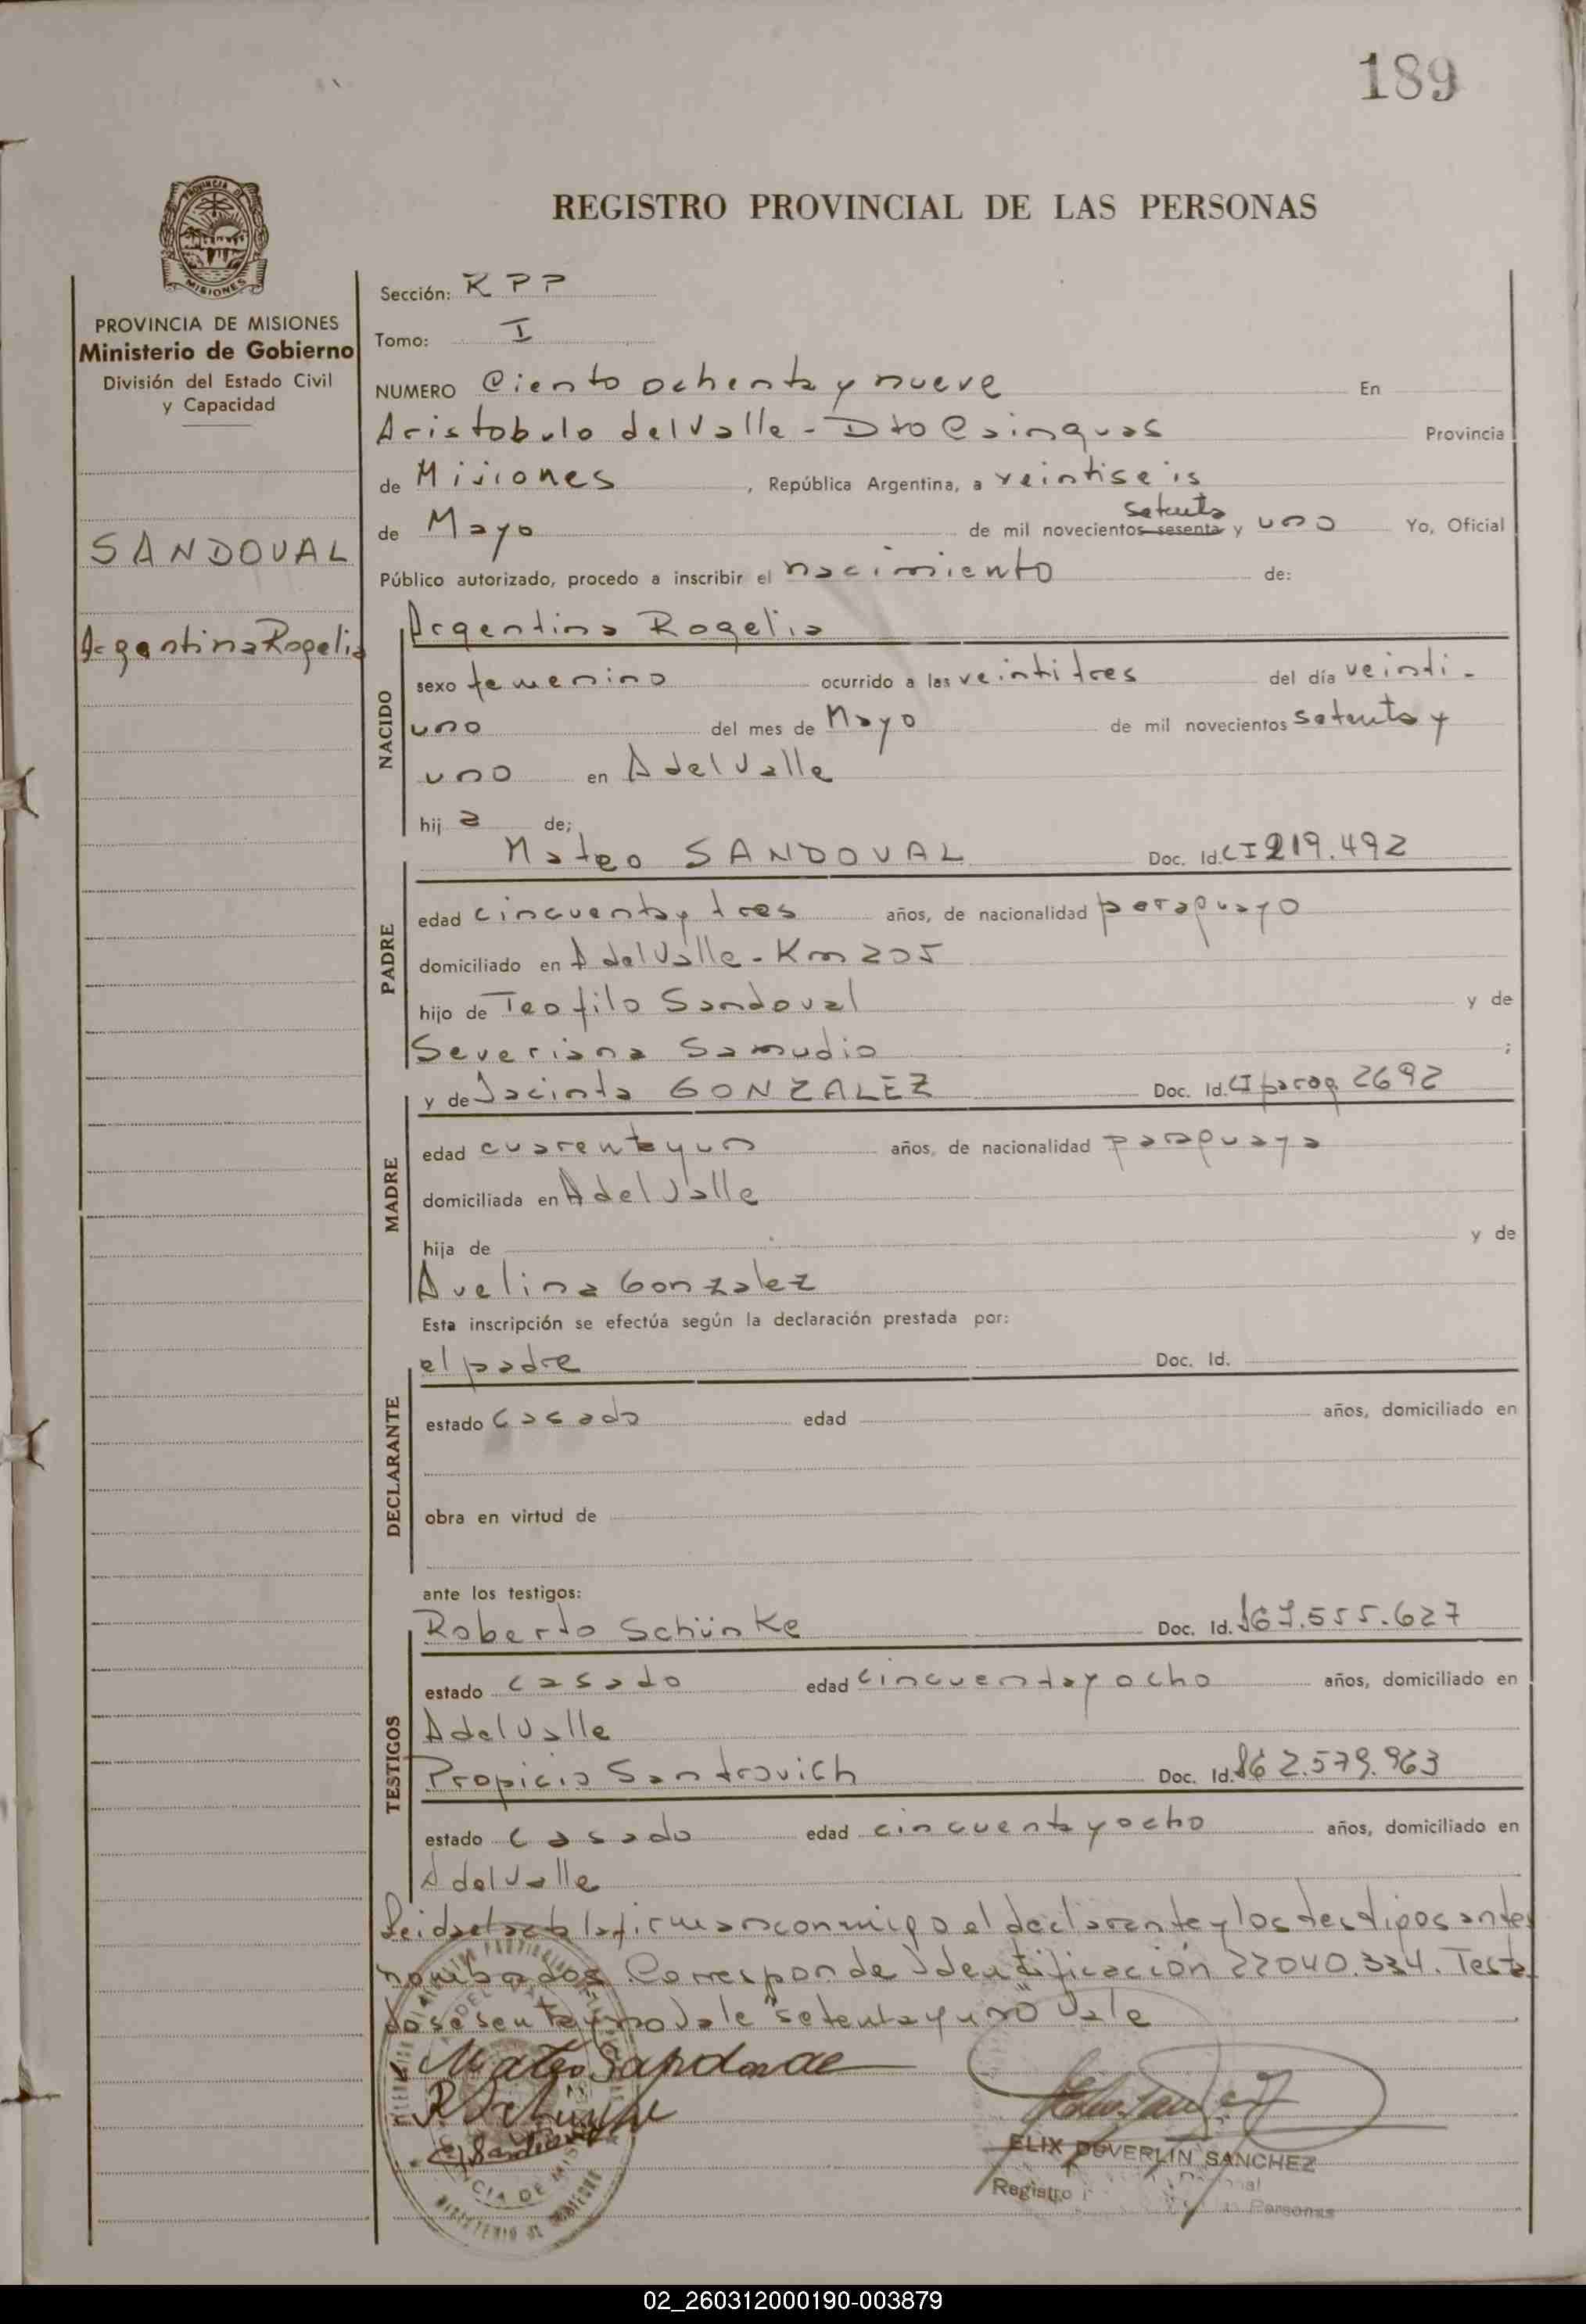 189
REGISTRO PROVINCIAL DE LAS PERSONAS
PROVINCIA DE MISIONES
Ministerio de Gobierno
División del Estado Civil
y Capacidad
SANDOVAL
Argentina Rogelia
Sección: RPP
Tomo: I
NUMERO Ciento ochenta y nueve En
Aristobulo del Valle - Dto Cainguas Provincia
de Misiones, República Argentina, a veintiseis
setenta
de Mayo de mil novecientos sesenta y uno Yo, Oficial
Público autorizado, procedo a inscribir el nacimiento de:
NACIDO
Argentina Rogelia
sexo femenino ocurrido a las veintitres del día veinti-
uno del mes de Mayo de mil novecientos setenta y
uno en A del Valle
hij a de;
PADRE
Mateo SANDOVAL Doc. Id. CI 219.492
edad cincuenta y tres años, de nacionalidad paraguayo
domiciliado en A del Valle - Km 205
hijo de Teofilo Sandoval y de
Severiana Samudio ;
MADRE
y de Jacinta GONZALEZ Doc. Id. CI parag 2692
edad cuarenta y un años, de nacionalidad paraguaya
domiciliada en A del Valle
hija de y de
Avelina Gonzalez
Esta inscripción se efectúa según la declaración prestada por:
DECLARANTE
el padre Doc. Id.
estado casado edad años, domiciliado en
obra en virtud de
ante los testigos:
TESTIGOS
Roberto Schünke Doc. Id. 7.555.627
estado casado edad cincuenta y ocho años, domiciliado en
A del Valle
Propicio Santrovich Doc. Id. 2.579.963
estado casado edad cincuenta y ocho años, domiciliado en
A del Valle
Leida el acta la firman conmigo el declarante y los testigos antes
nombrados Corresponde Identificación 22040.334. Testa
do sesenta y no vale "setenta y uno" Vale
Mateo Sandoval
R Schunke
ELIX DUVERLIN SANCHEZ
Registro Personas
02_260312000190-003879